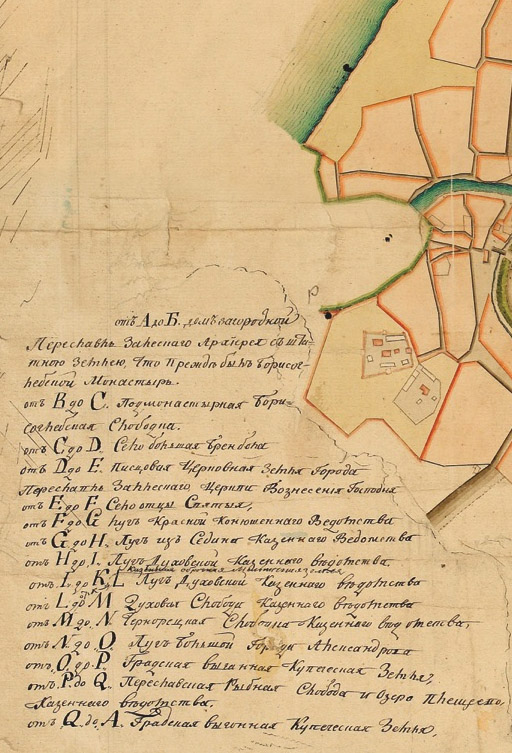 отъ А до Б. домъ загородной
Переславль Залескаго Архіерея съ пи-
тною Землею, что прежде былъ борисог-
лебской Монастырь.
отъ В до С. Подмонастырная бори-
соглебская Слободка.
отъ С до D. Село большая бренбола
отъ D до E. писцовая Церковная Земля Города
Переславль Залескаго, Церкви Вознесенія Господня
отъ E до F Село отцы Святыя,
отъ F до G лугъ Красной Конюшеннаго Ведомства
отъ G до H. Лугъ изъ Седина Казеннаго Ведомства
отъ H до I. Лугъ Духовской Казеннаго ведомства.
отъ I. до K L Лугъ Духовской Казеннаго ведомства
отъ L до M Духовая Слобода Казеннаго ведомства
отъ M до N Слободка Казеннаго ведомства,
отъ N. до O. Лугъ большой Города Александрова
отъ O. до P. Градская выгонная Купеческая Земля,
отъ P. до Q. Переславская Рыбная Слобода и Озеро Плещеево,
Казеннаго ведомства.
отъ Q. до A. Градская выгонная Купеческая Земля,